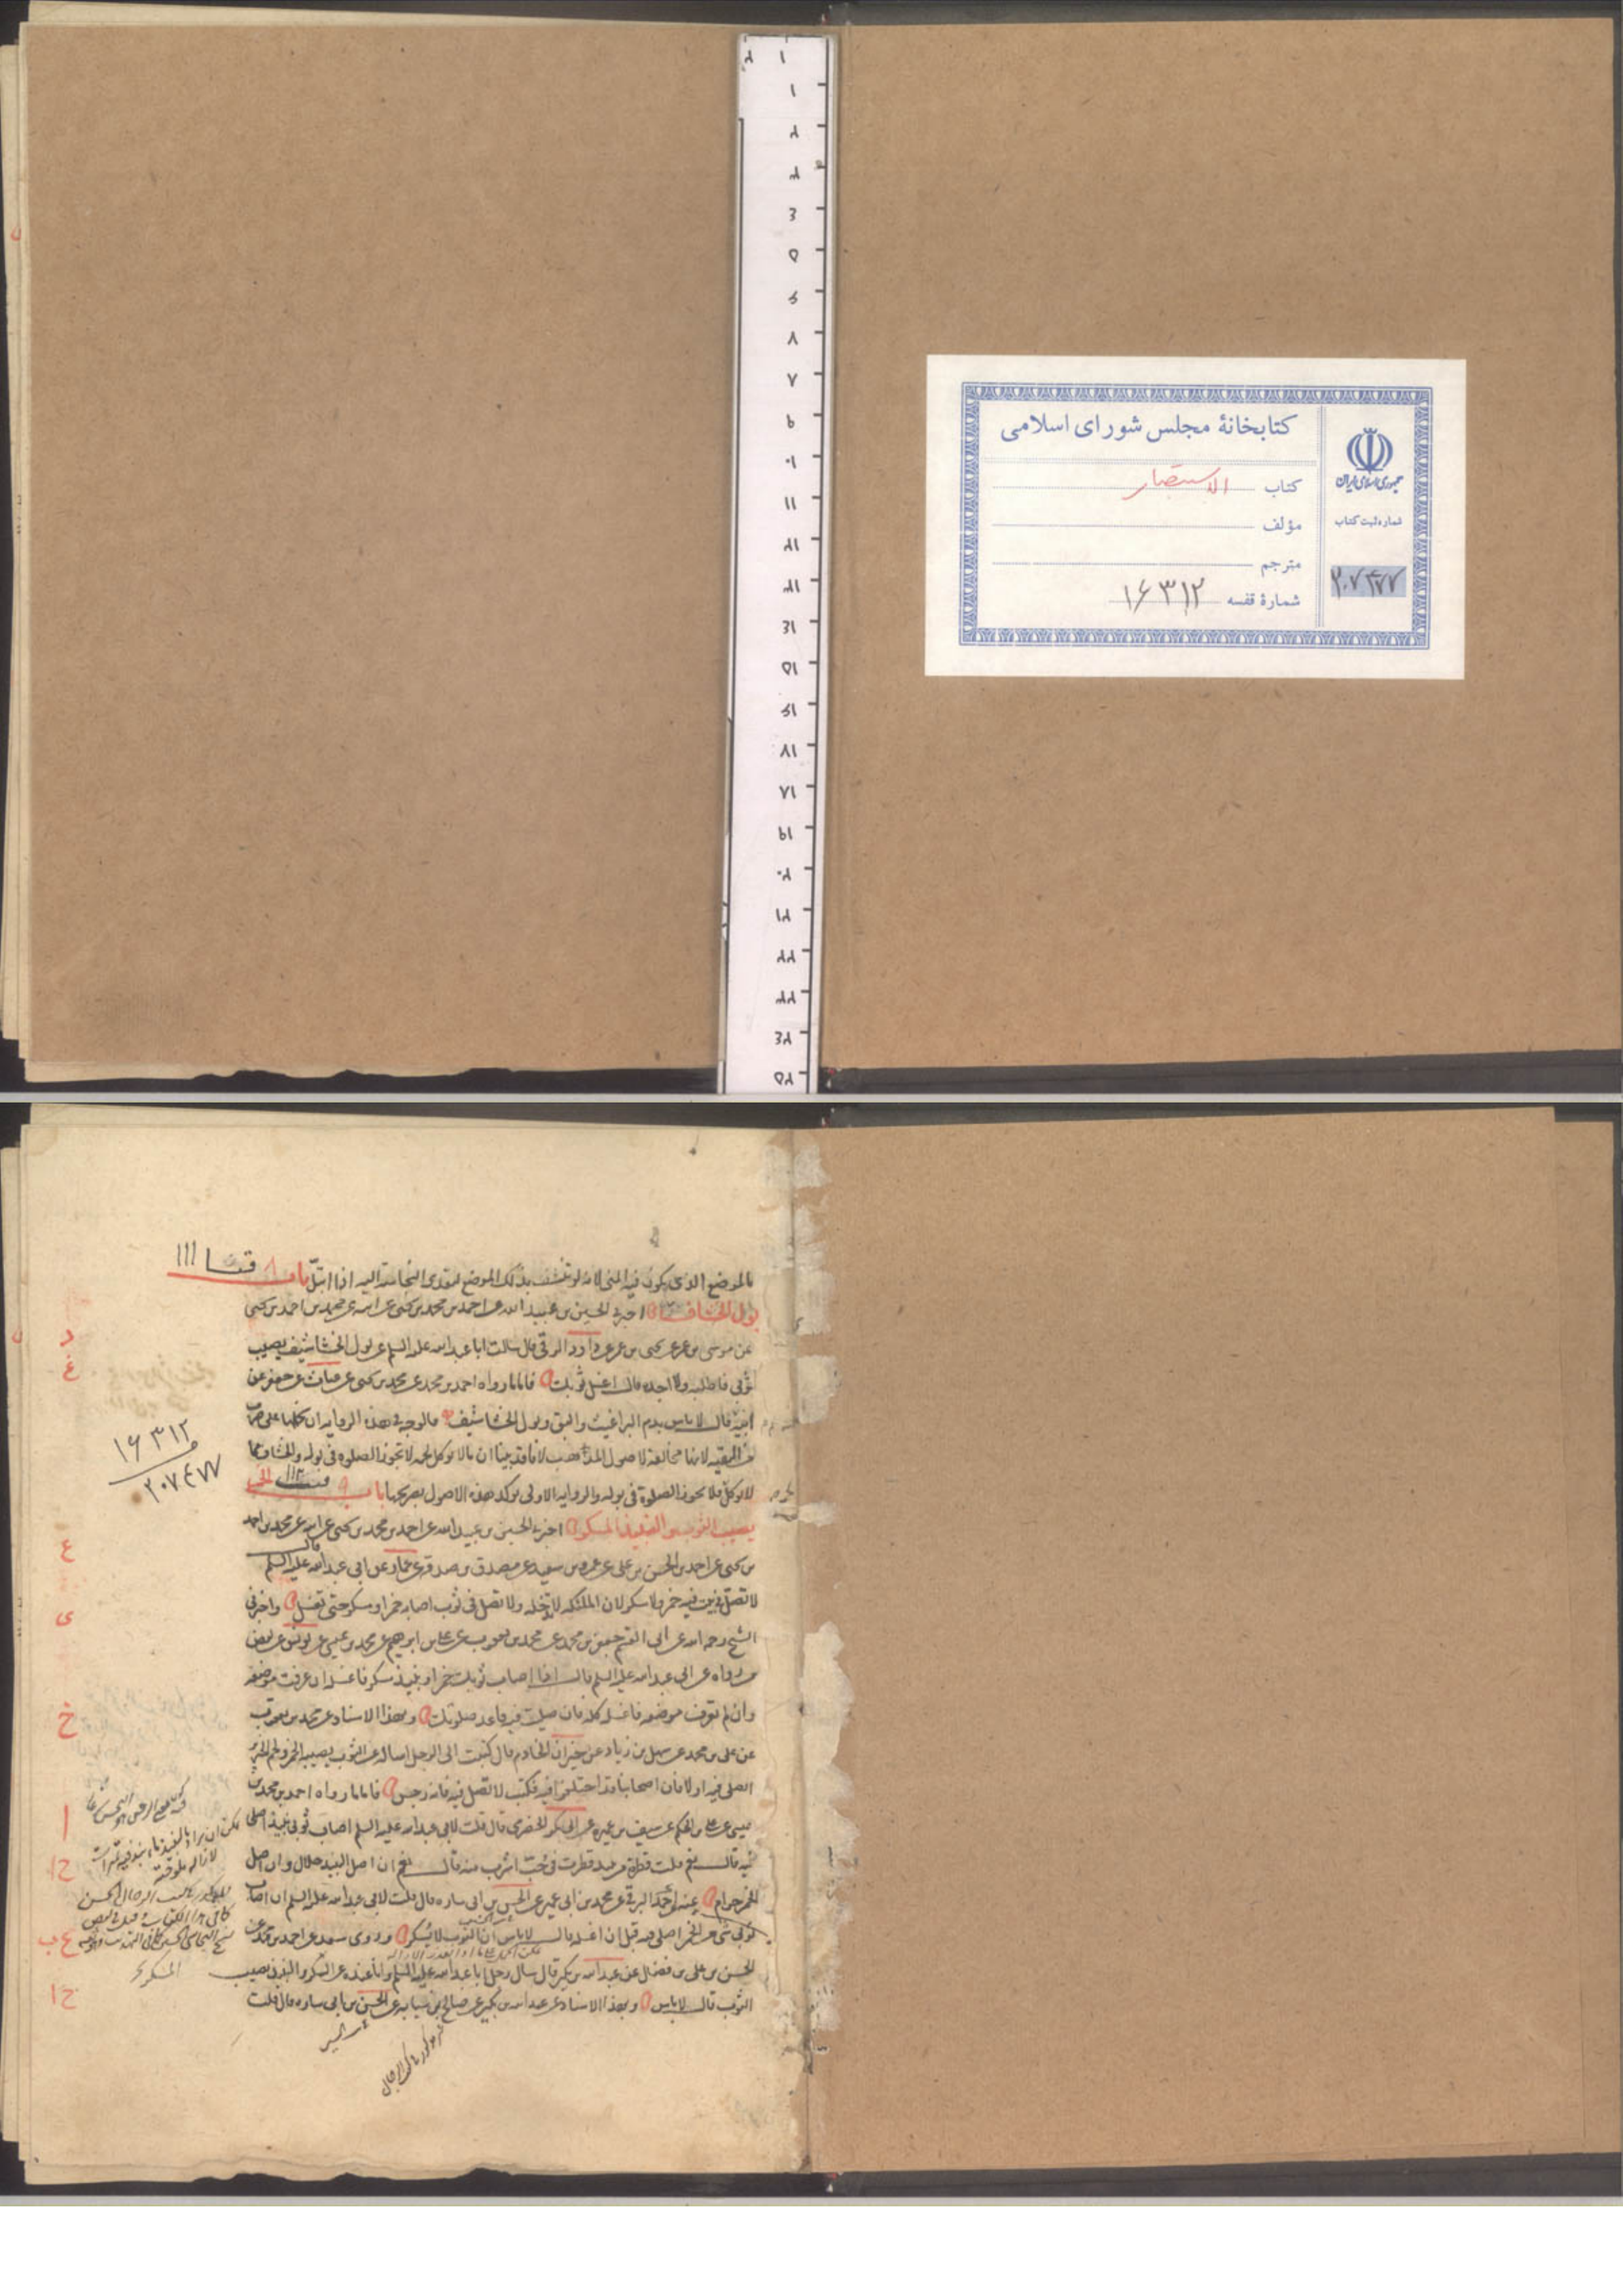 كتابخانهٔ مجلس شورای اسلامی
کتاب الاستبصار
مؤلف
مترجم
شمارهٔ قفسه ۱۶۳۱۲
جمهوری اسلامی ایران
شماره ثبت کتاب
۲۰۷۴۷۷
۱۱۱
بالموضع الذى يكون فيه المنى لانه لو تنشف بذلك الموضع لتعدى النجاسة اليه اذا ابتلّ باب
بول الخشاف اخبرنى الحسين بن عبيد الله عن احمد بن محمد بن يحيى عن ابيه عن محمد بن احمد بن يحيى
عن موسى بن عمر عن يحيى بن عمر عن داود الرقى قال سالت ابا عبد الله عليه السلم عن بول الخشاشيف يصيب
ثوبى فاطلبه ولا اجده قال اغسل ثوبك فاما ما رواه احمد بن محمد عن محمد بن يحيى عن غياث عن جعفر عن
ابيه قال لا باس بدم البراغيث والبق وبول الخشاشيف فالوجه فى هذه الرواية ان نحملها على ضرب
من التقيه لانها مخالفة لاصول المذهب لانا قد بينا ان ما لا يوكل لحمه لا تجوز الصلوه فى بوله والخشاف مما
لا يوكل فلا تجوز الصلوة فى بوله والرواية الاولى توكد هذه الاصول بصريحها باب الخمر
يصيب الثوب والنبيذ المسكر اخبرنى الحسين بن عبيد الله عن احمد بن محمد بن يحيى عن ابيه عن محمد بن احمد
بن يحيى عن احمد بن الحسن بن على عن عمرو بن سعيد عن مصدق بن صدقه عن عمار عن ابى عبد الله عليه السلم قال
لا تصل فى بيت فيه خمر ولا مسكر لان الملئكه لا تدخله ولا تصل فى ثوب اصابه خمر او مسكر حتى تغسل واخبرنى
الشيخ رحمه الله عن ابى القسم جعفر بن محمد عن محمد بن يعقوب عن على بن ابرهيم عن محمد بن عيسى عن يونس عن بعض
من رواه عن ابى عبد الله عليه السلم قال اذا اصاب ثوبك خمر او نبيذ مسكر فاغسله ان عرفت موضعه
وان لم تعرف موضعه فاغسله كله فان صليت فيه فاعد صلوتك وبهذا الاسناد عن محمد بن يعقوب
عن على بن محمد عن سهل بن زياد عن خيران الخادم قال كتبت الى الرجل اساله عن الثوب يصيبه الخمر ولحم الخنزير
ايصلى فيه او لا فان اصحابنا قد اختلفوا فيه فكتب لا تصل فيه فانه رجس فاما ما رواه احمد بن محمد بن
عيسى عن على بن الحكم عن سيف بن عميره عن ابى بكر الحضرمى قال قلت لابى عبد الله عليه السلم اصاب ثوبى نبيذ اصلى
فيه قال نعم قلت قطرة من نبيذ قطرت فى حُبّ اشرب منه قال نعم ان اصل النبيذ حلال وان اصل
الخمر حرام عنه احمد البرقى عن محمد بن ابى عمير عن الحسن بن ابى ساره قال قلت لابى عبد الله عليه السلم ان اصاب
ثوبى شى من الخمر اصلى فيه قبل ان اغسله قال لا باس ان الثوب لا يسكر وروى سعد عن احمد بن محمد عن
الحسن بن على بن فضال عن عبد الله بن بكير قال سال رجل ابا عبد الله عليه السلم وانا عنده عن المسكر والنبيذ يصيب
الثوب قال لا باس وبهذا الاسناد عن عبد الله بن بكير عن صالح بن سيابه عن الحسن بن ابى ساره قال قلت
۱۶۳۱۲
۲۰۷۴۷۷